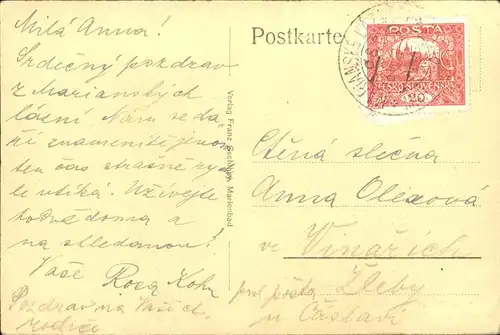 Milá Anna!
Srdečný pozdrav
z Marianských
lázní. Nám se da-
ří znamenitě jenom
ten čas strašně ryc
le utíká. Užívejte
doma a
na shledanou!
Vaše Kohn
Pozdrav na Vaše ct.
rodiče
Verlag Franz Marienbad
Postkarte
POŠTA
ČESKO-SLOVENSKÁ
20
Ctěná slečna
Anna Olexová
ve Vinařích
p. pošta Žleby
u Čáslavi